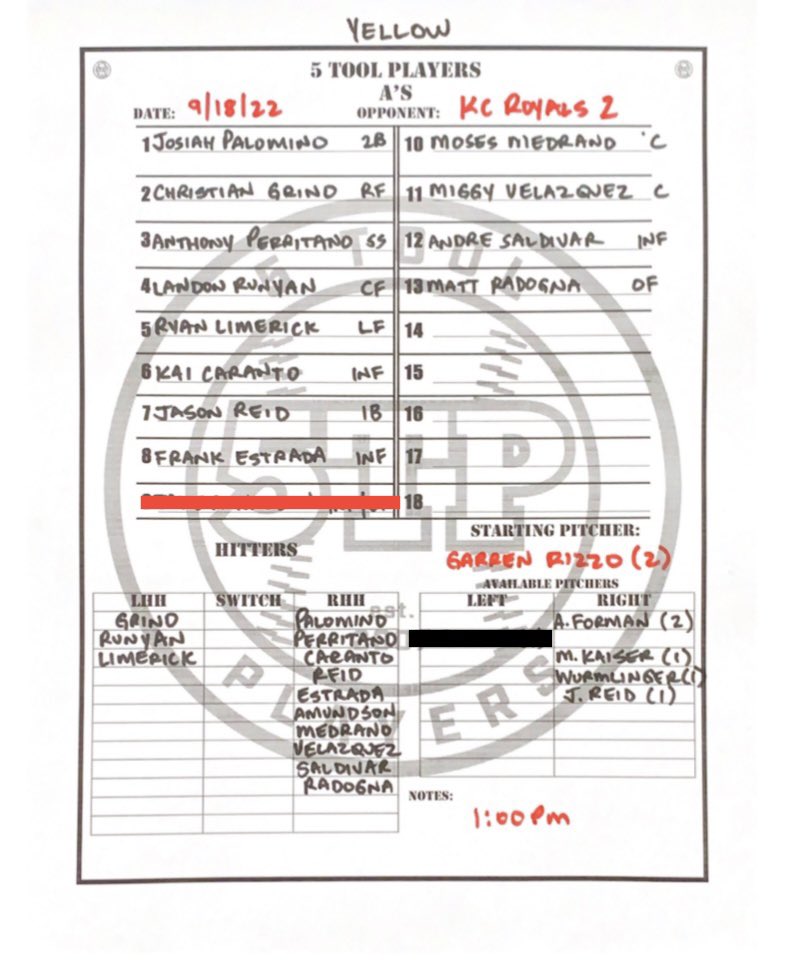 YELLOW
5 TOOL PLAYERS
A'S
DATE: 9/18/22 OPPONENT: KC ROYALS 2
1 JOSIAH PALOMINO 2B
2 CHRISTIAN GRINO RF
3 ANTHONY PERRITANO SS
4 LANDON RUNYAN CF
5 RYAN LIMERICK LF
6 KAI CARANTO INF
7 JASON REID 1B
8 FRANK ESTRADA INF
10 MOSES MEDRANO C
11 MIGGY VELAZQUEZ C
12 ANDRE SALDIVAR INF
13 MATT RADOGNA OF
14
15
16
17
18
HITTERS
LHH SWITCH RHH
GRINO PALOMINO
RUNYAN PERRITANO
LIMERICK CARANTO
REID
ESTRADA
AMUNDSON
MEDRANO
VELAZQUEZ
SALDIVAR
RADOGNA
STARTING PITCHER:
GARREN RIZZO (2)
AVAILABLE PITCHERS
LEFT RIGHT
A. FORMAN (2)
M. KAISER (1)
WURMLINGER (1)
J. REID (1)
NOTES:
1:00 PM
5 TOOL
5TP
est.
PLAYERS